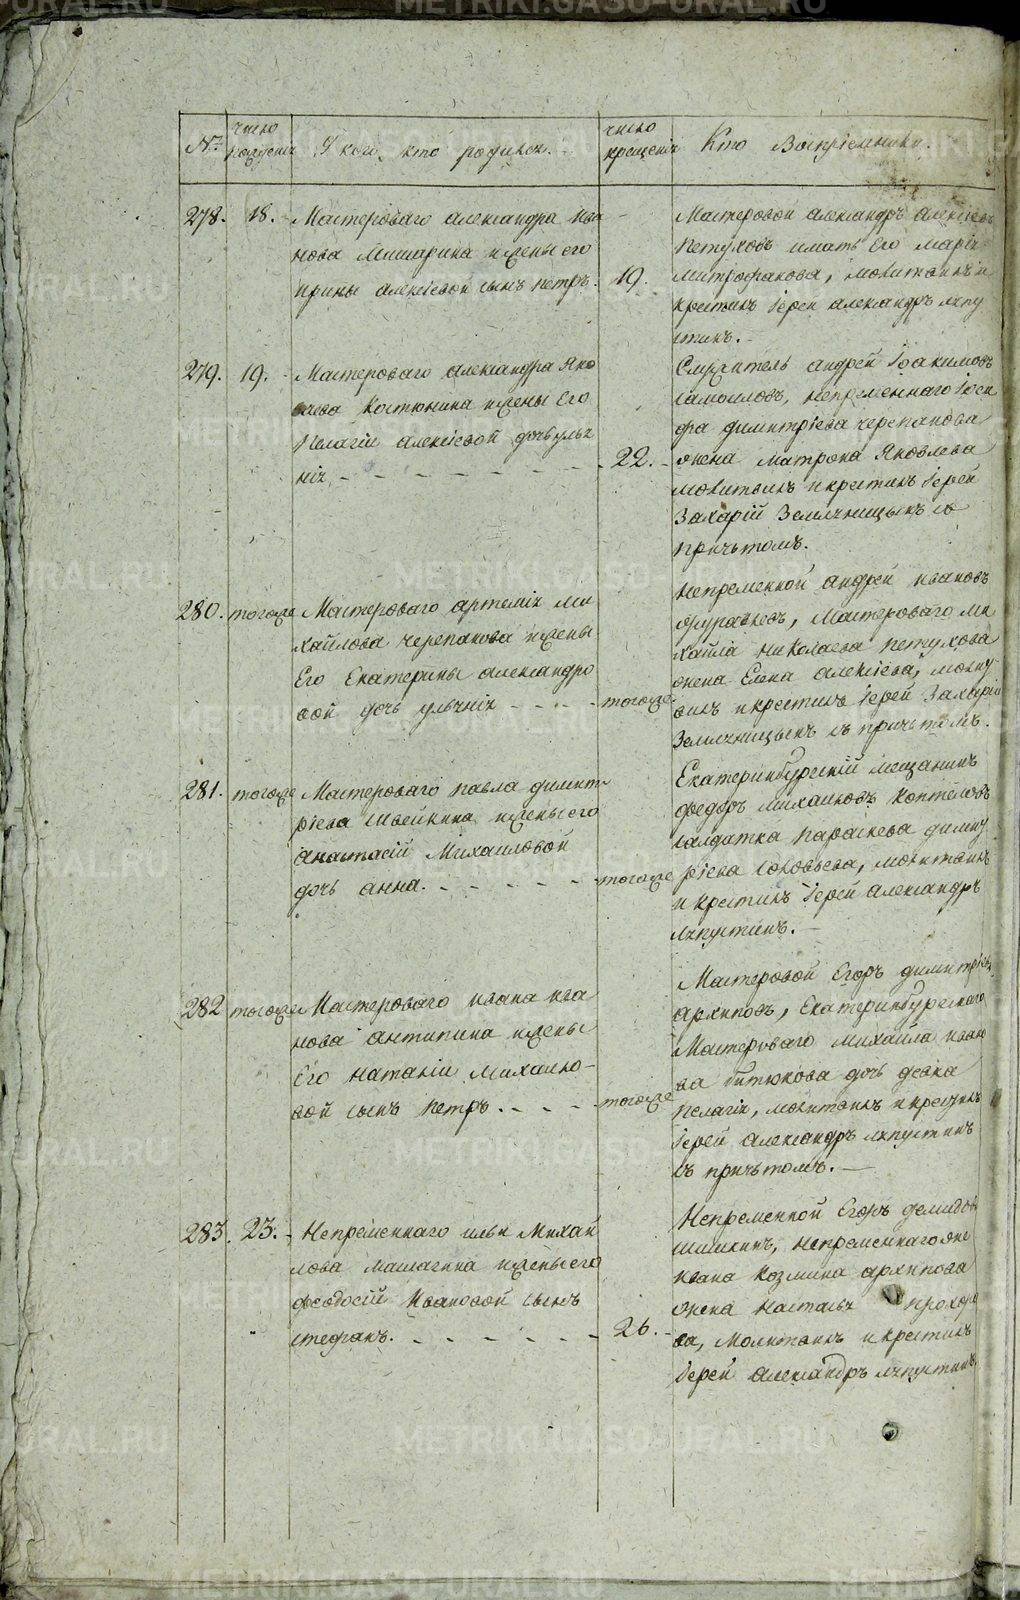 №
число рожденія
У кого, кто родился.
число крещенія
Кто Воспріемники.
278. 18. Мастероваго александра ива
нова Мишарина и жены его
ирины алексіевой сынъ петръ.
19.
Мастеровои александръ алексіевъ
Петуховъ и мать его марія
митрофанова, молитвилъ и
крестилъ Іереи александръ ляпу
стинъ.
279. 19. Мастероваго александра Яко
влева Костюнина и жены Его
Пелагіи алексіевой дочь улья
нія
22.
Служитель андреи Іоакимовъ
самоиловъ, непременнаго Іоси
фа димитріева черепанова
жена матрона Яковлева
молитвилъ и крестилъ Іереи
Захаріи Земляницынъ со
причьтомъ.
280. тогоже Мастероваго артемія ми
хаилова черепанова и жены
Его Екатерины александро
вой дочь ульянія
тогоже
Непременной андреи ивановъ
журавлевъ, Мастероваго ми
хаила николаева петухова
жена Елена алексіева, молит
вилъ и крестилъ Іереи Захаріи
Земляницынъ съ причьтомъ.
281. тогоже Мастероваго павла димит
ріева швейкина и жены его
анастасіи Михаиловой
дочь анна.
тогоже
Екатеринбургскіи мещанинъ
федоръ михаиловъ коптеловъ
салдатка параскева димит
ріева соловьева, молитвилъ
и крестилъ Іереи александръ
ляпустинъ.
282 тогоже Мастероваго ивана ива
нова антипина и жены
Его наталіи михаило-
вой сынъ петръ.
тогоже
Мастеровой Егоръ димитріевъ
архиповъ, Екатеринбургскаго
Мастероваго михаила ивано
ва битюкова дочь девка
пелагія, молитвилъ и крестилъ
Іереи александръ ляпустинъ
съ причьтомъ.
283. 23. Непременнаго ильи Михаи
лова малагина и жены его
феодосіи ивановой сынъ
стефанъ.
26.
Непременной Егоръ демидовъ
шишкинъ, непременнаго же
ивана козмина архипова
жена наталья прохоро
ва, молитвилъ и крестилъ
Іереи александръ ляпустинъ
METRIKI.GASO-URAL.RU